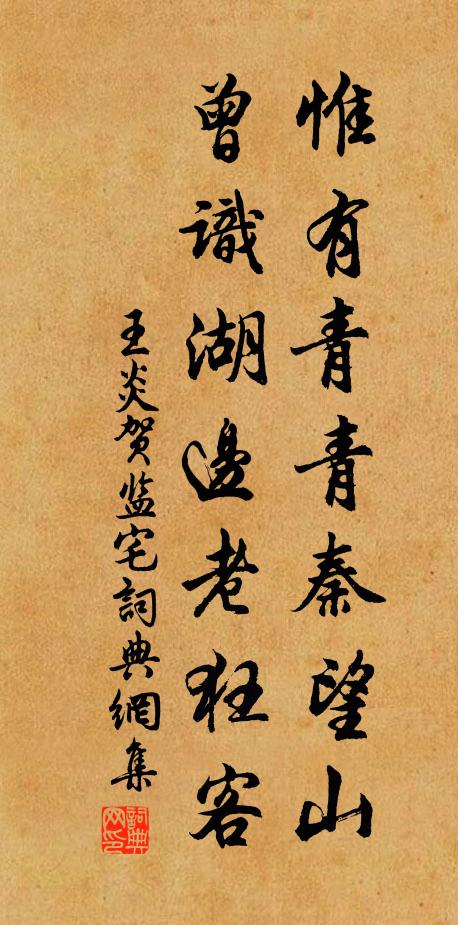 惟有青青秦望山
曾識湖邊老狂客
王炎贺监宅詞典網集
詞典網印